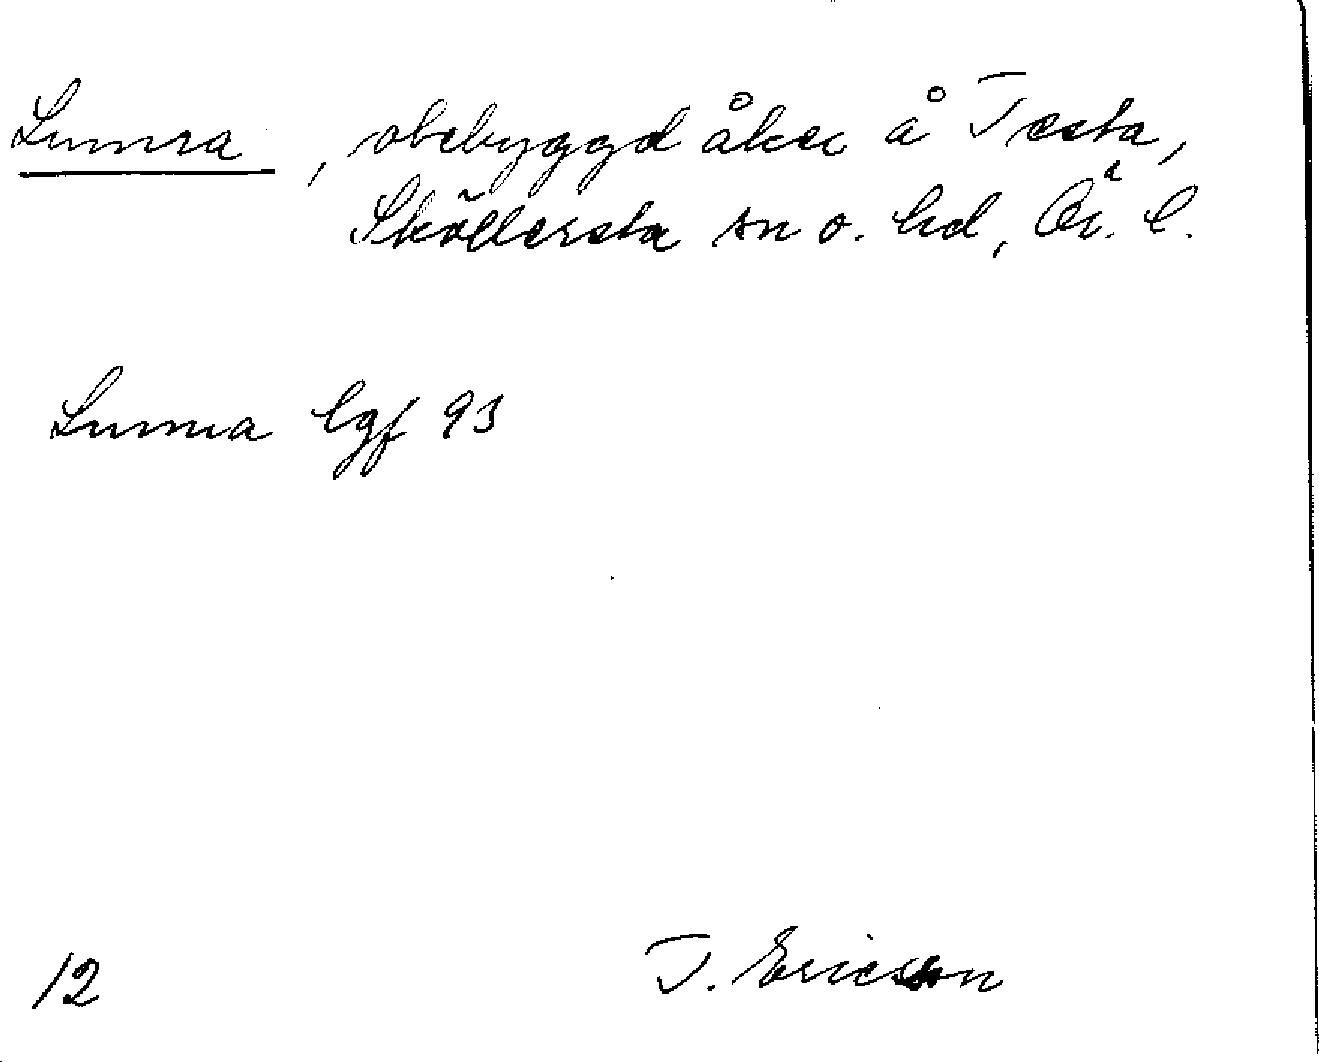 Lumsa, obebyggd åker å Testa,
Sköllersta sn o. hd, Ör. l.
Lumsa lgf 93
12 T. Ericsson